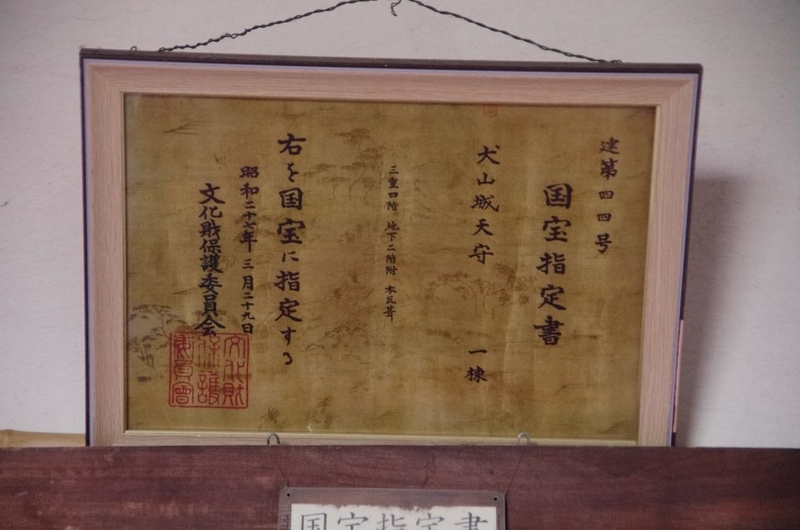 建第四四号
国宝指定書
犬山城天守 一棟
三重四階、地下二階附 本瓦葺
右を国宝に指定する
昭和二十七年三月二十九日
文化財保護委員会
文化財
保護
委員會
国宝指定書